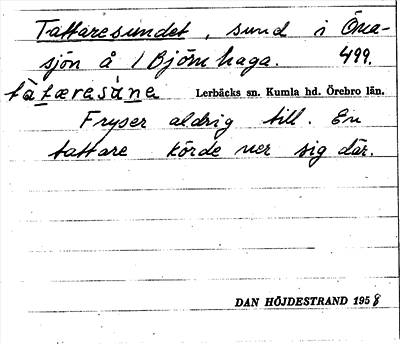 Tattaresundet, sund i Öna-
sjön å 1 Björnhaga. 499.
tàtæresúne Lerbäcks sn. Kumla hd. Örebro län.
Fryser aldrig till. En
tattare körde ner sig där.
DAN HÖJDESTRAND 1958